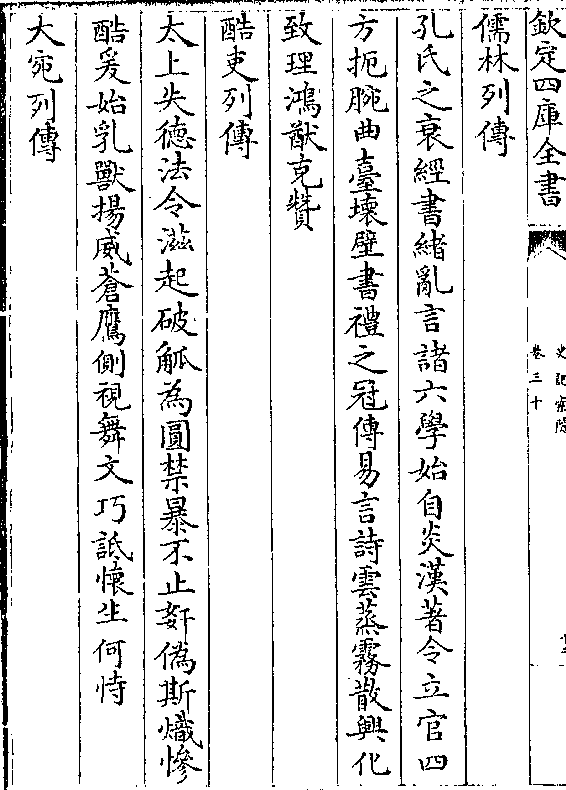 欽定四庫全書
史記索隱
卷三十
儒林列傳
孔氏之衰經書緒亂言諸六學始自炎漢著令立官四
方扼腕曲臺壞壁書禮之冠傳易言詩雲蒸霧散興化
致理鴻猷克贊
酷吏列傳
太上失德法令滋起破觚為圓禁暴不止姧偽斯熾慘
酷爰始乳獸揚威蒼鷹側視舞文巧詆懷生何恃
大宛列傳